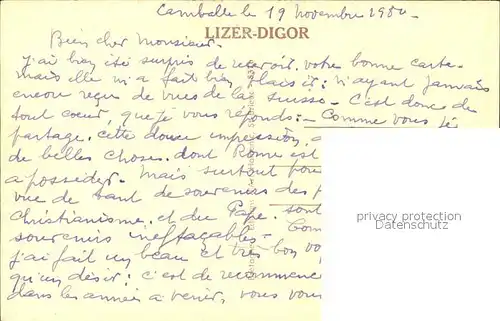 Cambelle le 19 Novembre 1980
LIZER-DIGOR
Bien cher Monsieur.
J'ai bien été surpris de recevoir votre bonne carte-
mais elle m'a fait bien plaisir: n'ayant jamais
encore reçu de vues de la Suisse - C'est donc de
tout coeur, que je vous réponds: - Comme vous je
partage. cette douce impression,
de belles choses. dont Rome est
a posséder. Mais surtout pour
vue de tant de souvenirs des
Christianisme. et du Pape. sont
souvenirs ineffaçables - Com
j'ai fait un beau et très bon vo
qu'un désir: c'est de recommence
dans les années a venir, vous vous
privacy protection
datenschutz